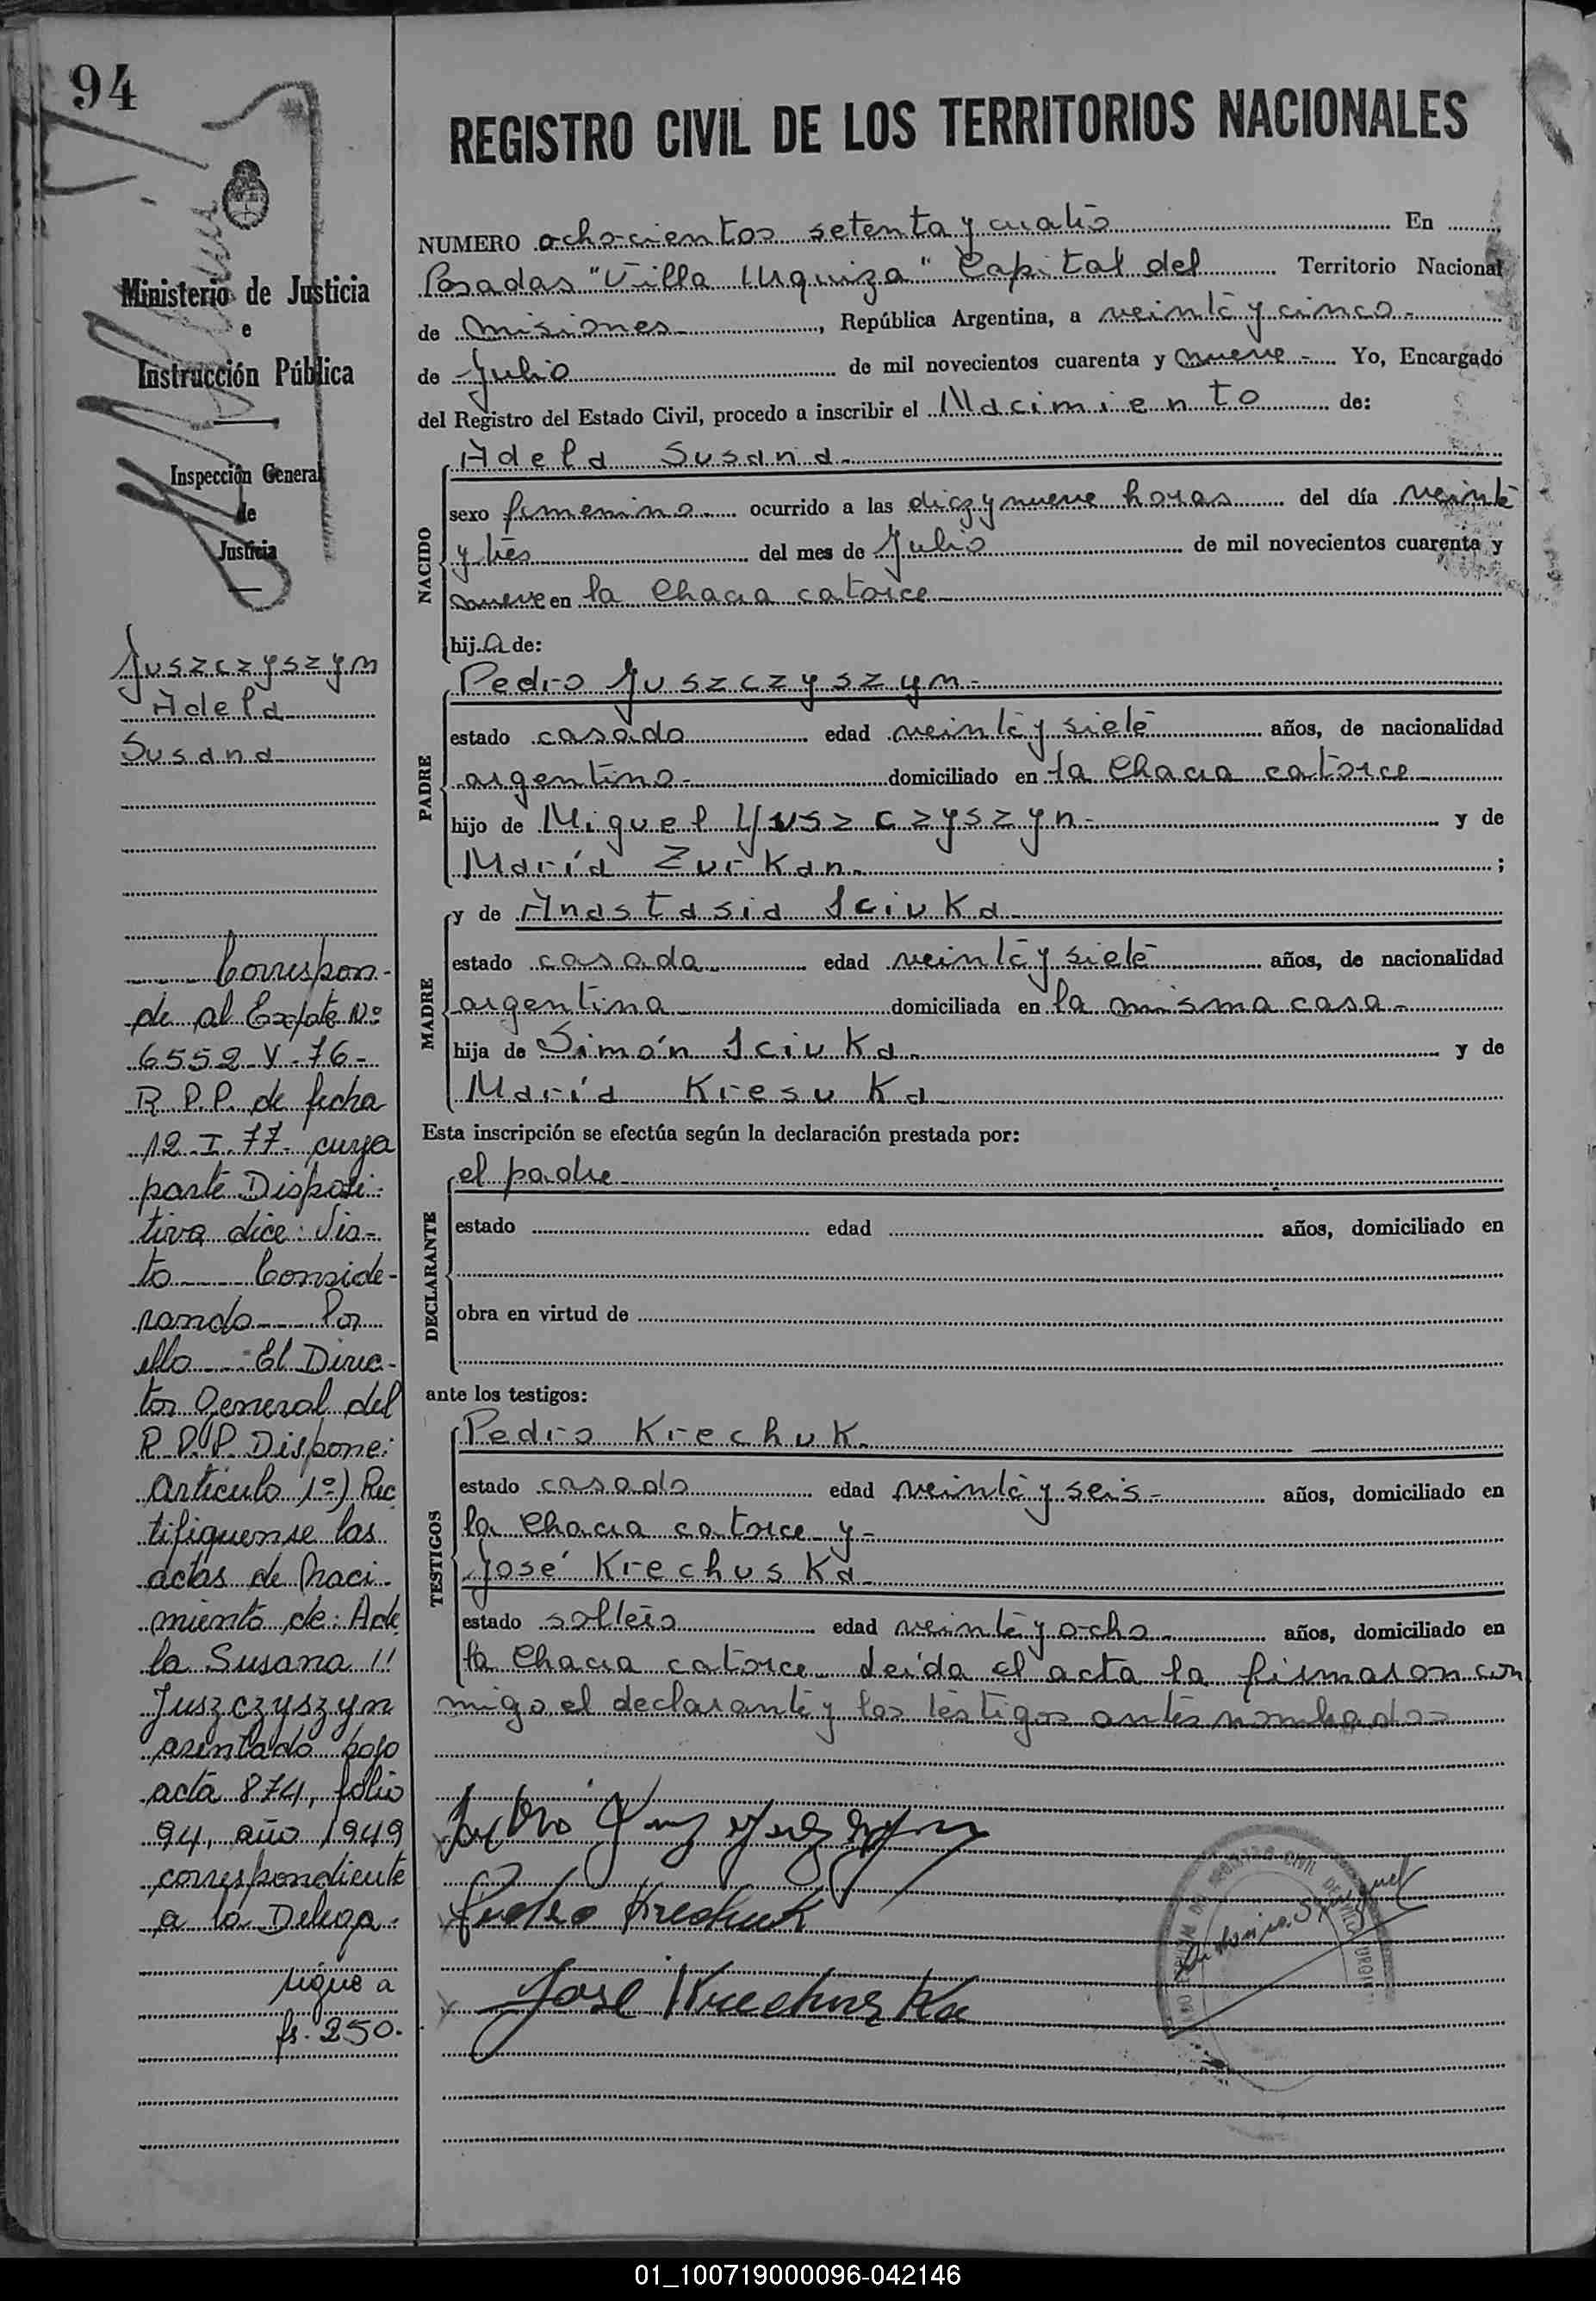 94
REGISTRO CIVIL DE LOS TERRITORIOS NACIONALES
Ministerio de Justicia
e
Instrucción Pública
Inspección General
de
Justicia
Juszczyszyn
Adela
Susana
Correspon-
de al Expte Nº
6552-V-76-
R.P.P. de fecha
12-I-77- cuya
parte Disposi-
tiva dice: Vis-
to---- Conside-
rando---- Por
ello---- El Direc-
tor General del
R.P.P. Dispone:
Artículo 1º) Rec
tifiquense las
actas de Naci-
miento de: Ade
la Susana //
Juszczyszyn
asentado bajo
acta 874, folio
94, año 1949
correspondiente
a la Delega-
sigue a
fs. 250.
NUMERO ochocientos setenta y cuatro En
Posadas "Villa Urquiza" Capital del Territorio Nacional
de Misiones-, República Argentina, a veinte y cinco-
de Julio de mil novecientos cuarenta y nueve-. Yo, Encargado
del Registro del Estado Civil, procedo a inscribir el Nacimiento de:
NACIDO
Adela Susana-
sexo femenino- ocurrido a las diez y nueve horas del día veinte
y tres del mes de Julio de mil novecientos cuarenta y
nueve en la Chacra catorce-
hija de:
PADRE
Pedro Juszczyszyn-
estado casado edad veinte y siete años, de nacionalidad
argentino- domiciliado en la Chacra catorce
hijo de Miguel Yuszczyszyn- y de
María Zurkan- ;
MADRE
y de Anastasia Sciuka-
estado casada- edad veinte y siete años, de nacionalidad
argentina domiciliada en la misma casa-
hija de Simón Sciuka- y de
María Kresuka-
Esta inscripción se efectúa según la declaración prestada por:
DECLARANTE
el padre
estado edad años, domiciliado en
obra en virtud de
ante los testigos:
TESTIGOS
Pedro Krechuk-
estado casado edad veinte y seis- años, domiciliado en
la Chacra catorce y-
José Krechuska-
estado soltero edad veinte y ocho- años, domiciliado en
la Chacra catorce- Leída el acta la firmaron con
migo el declarante y los testigos antes nombrados
Pedro Krechuk
José Krechuska
01_100719000096-042146